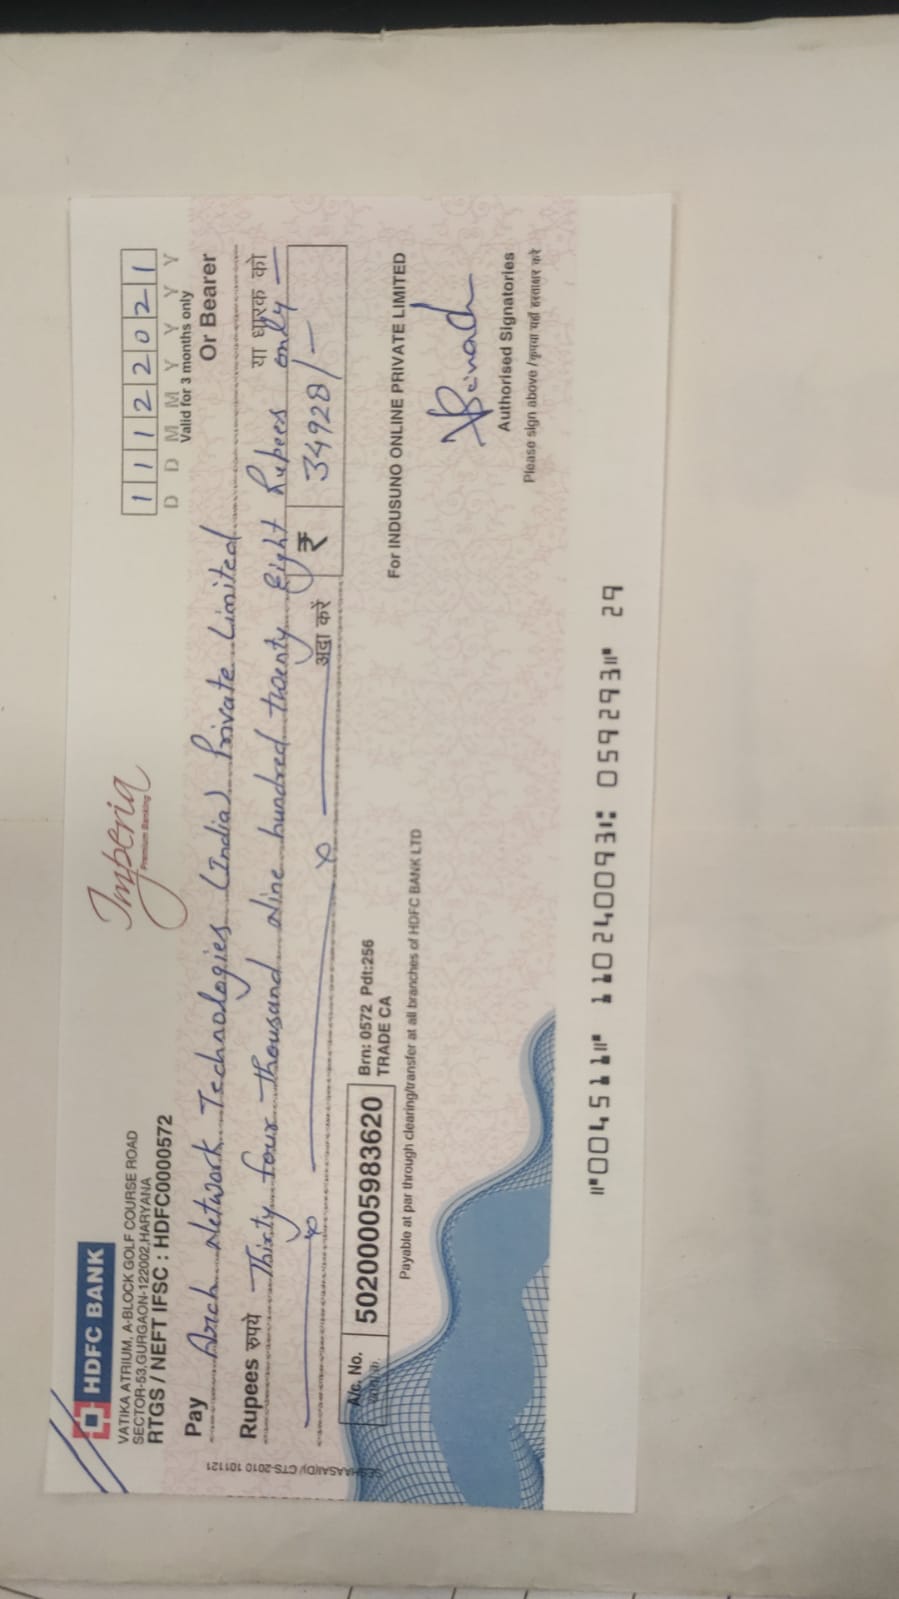 HDFC BANK
VATIKA ATRIUM, A-BLOCK GOLF COURSE ROAD
SECTOR-53,GURGAON-122002,HARYANA
RTGS / NEFT IFSC : HDFC0000572
Imperia
Premium Banking
11122021
D D M M Y Y Y Y
Valid for 3 months only
Pay Arch Network Technologies (India) Private Limited Or Bearer
या धारक को
Rupees रुपये Thirty four thousand Nine hundred twenty Eight Rupees only
अदा करें ₹ 34928/-
A/c. No. 50200005983620 Brn: 0572 Pdt:256
TRADE CA
For INDUSUNO ONLINE PRIVATE LIMITED
Payable at par through clearing/transfer at all branches of HDFC BANK LTD
Authorised Signatories
Please sign above / कृपया यहाँ हस्ताक्षर करे
CTS-2010 101121
⑈004511⑈ 110240093⑆ 059293⑈ 29